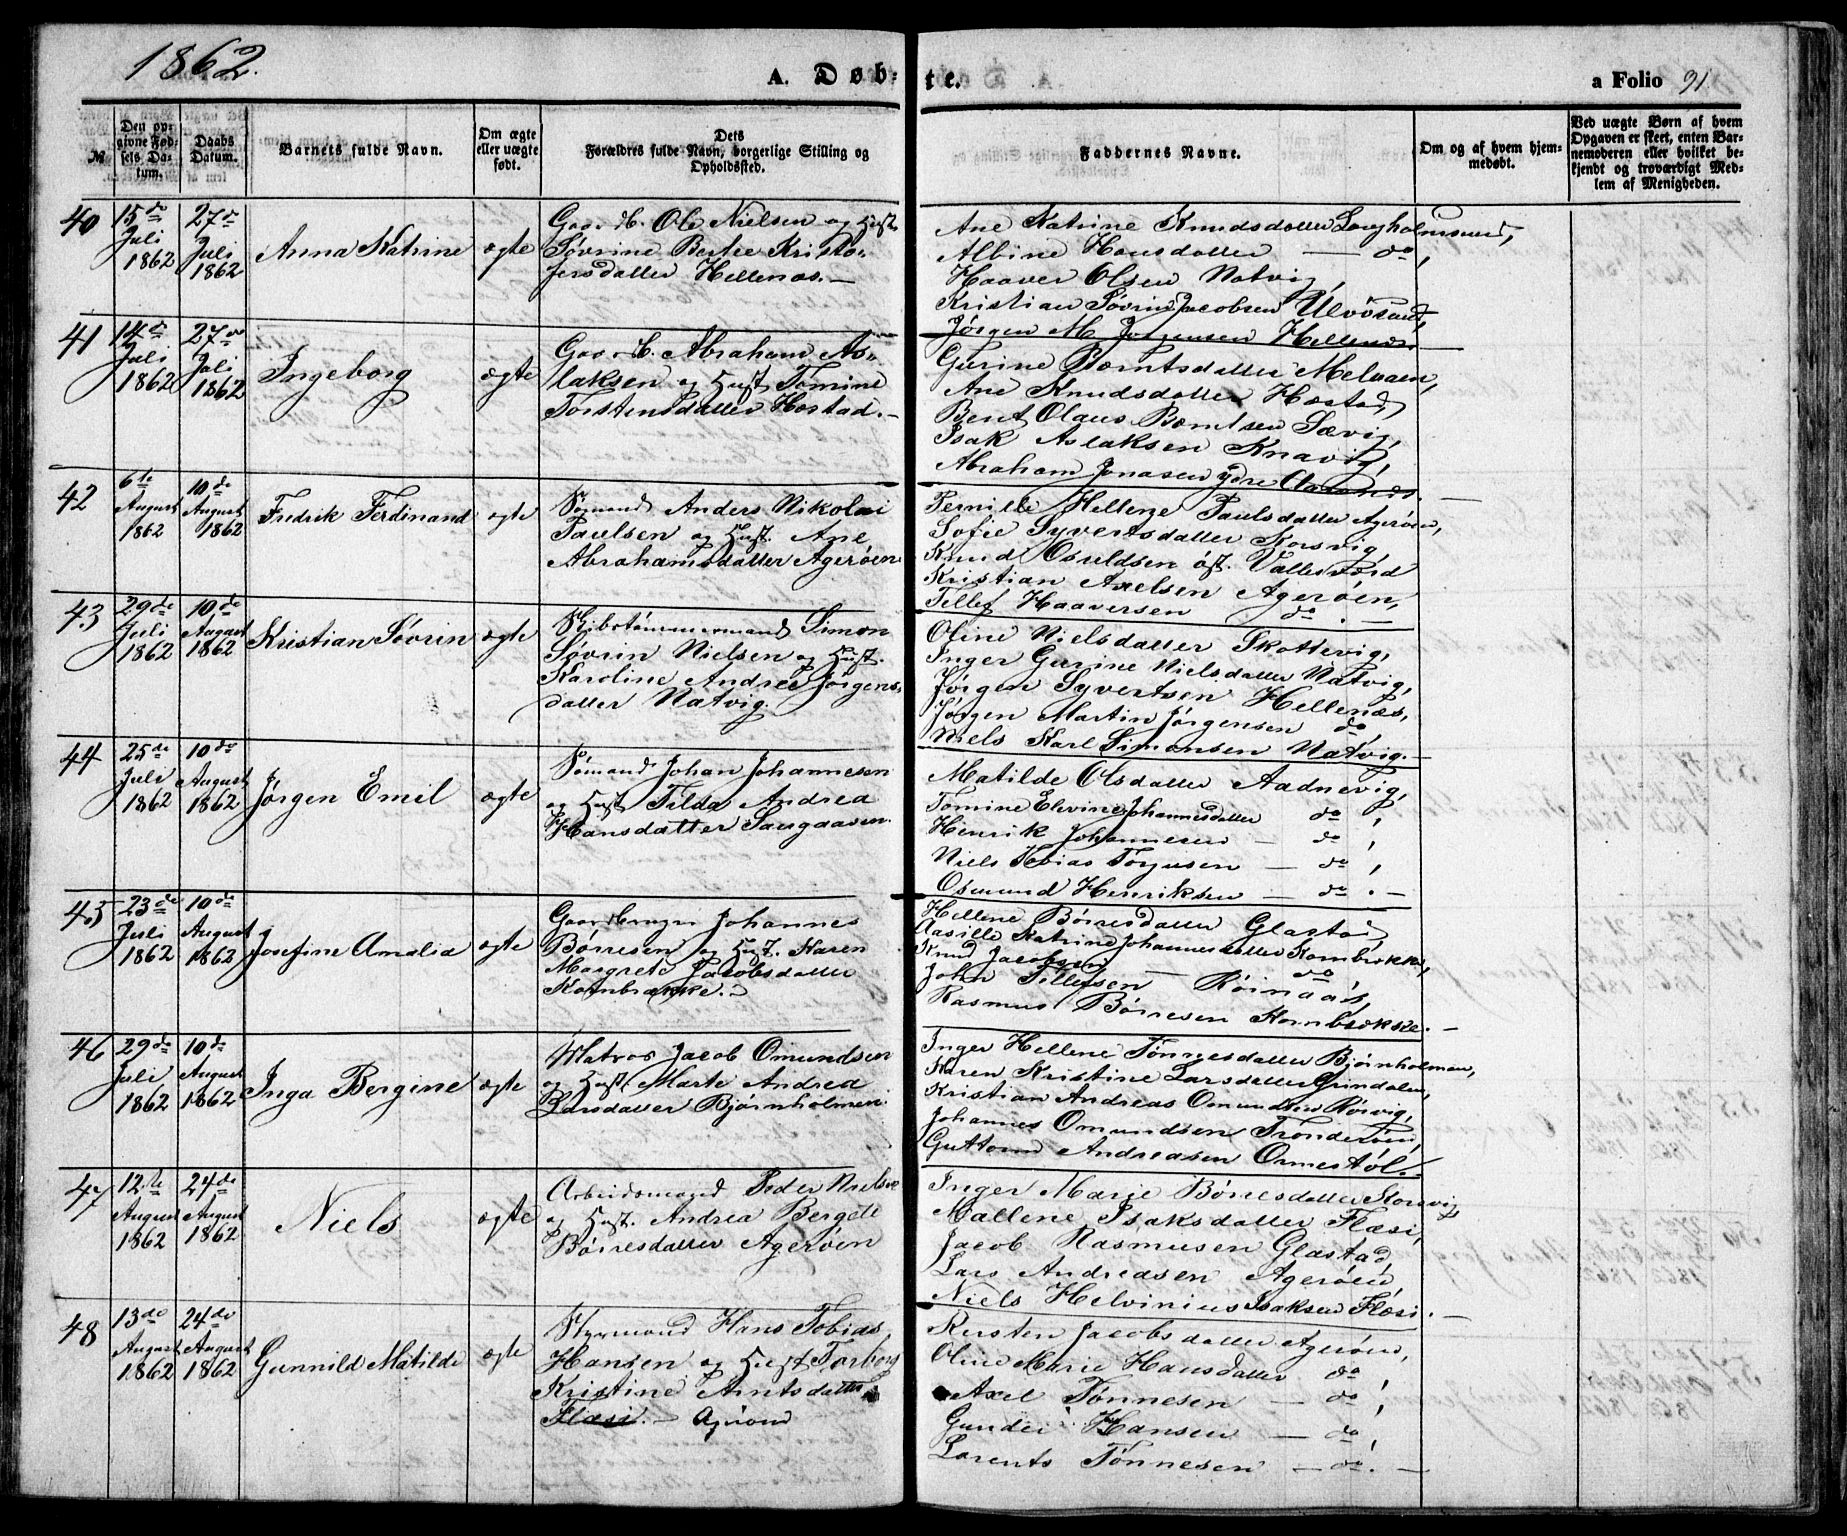 1862.
A. Døb-
te.
a Folio 91
№
Den opgivne Fødsels Datum.
Daabs Datum.
Barnets fulde Navn.
Om ægte eller uægte født.
Dets
Forældres fulde Navn, borgerlige Stilling og
Opholdssted.
Faddernes Navne.
Om og af hvem hjemmedøbt.
Ved uægte Børn af hvem Opgaven er skeet, enten Barnemoderen eller hvilket bekjendt og troværdigt Medlem af Menigheden.
40
15de Juli 1862
27de Juli 1862
Anna Katrine
ægte
Gaardb. Ole Nielsen og Hust.
Søvrine Bertee Kristo-
fersdatter Hellenæs.
Ane Katrine Knudsdatter Langholmsund,
Albine Hansdatter — do,
Haaver Olsen Natvig,
Kristian Søvrin Jacobsen Ulvøsund,
Jørgen M. Jørgensen Hellenæs.
41
14de Juli 1862
27de Juli 1862
Ingeborg
ægte
Gaardb. Abraham As-
laksen og Hust. Tomine
Torstensdatter Hæstad.
Gurine Berntsdatter Melaaen,
Ane Knudsdatter Hæstad,
Bent Olaus Berntsen Sævig,
Isak Aslaksen Knavig,
Abraham Jonasen ydre
42
6te August 1862
10de August 1862
Fredrik Ferdinand
ægte
Sømand Anders Nikolai
Paulsen og Hust. Ane
Abrahamsdatter Agerøen
Pernille Hellene Paulsdatter Agerøen,
Sofie Syvertsdatter Korsvig,
Knud Osuldsen øst. Vallesværd
Kristian Axelsen Agerøen,
Tellef Haaversen do.
43
29de Juli 1862
10de August 1862
Kristian Søvrin
ægte
Skibstømmermand Simon
Søvrin Nielsen og Hust.
Karoline Andrea Jørgens-
datter Natvig.
Oline Nielsdatter Skottevig,
Inger Gurine Nielsdatter Natvig,
Jørgen Syvertsen Hellenæs,
Jørgen Martin Jørgensen do,
Niels Karl Simonsen Natvig.
44
25de Juli 1862
10de August 1862
Jørgen Emil
ægte
Sømand Johan Johannesen
og Hust. Tilda Andrea
Hansdatter Sangaasen.
Matilde Olsdatter Aadnevig,
Tomine Elevine Johannesdatter do,
Henrik Johannesen — do,
Niels Tobias Tørjusen — do,
Osmund Henriksen — do.
45
23de Juli 1862
10de August 1862
Josefine Amalia
ægte
Gaardbruger Johannes
Børresen og Hust. Karen
Margrete Jacobsdatter
Kornbrække.
Hellene Børresdatter Glastad,
Aasille Katrine Johannesdatter Kornbrække,
Knud Jacobsen — do
John Tellefsen Røinaas,
Rasmus Børresen Kornbrække.
46
29de Juli 1862
10de August 1862
Inga Bergine
ægte
Matros Jacob Omundsen
og Hust. Marte Andrea
Larsdatter Bjørnholmen.
Inger Hellene Tønnesdatter Bjørnholmen,
Karen Kristine Larsdatter Grimdalen,
Kristian Andreas Omundsen Rørvig,
Johannes Omundsen Trønderøen,
Guttorm Andreasen Ormestøl.
47
12te August 1862
24de August 1862
Niels
ægte
Arbeidsmand Peder Nielsen
og Hust. Andrea Bergete
Børresdatter Agerøen
Inger Marie Børresdatter Korsvig,
Mallene Isaksdatter Flæsi,
Jacob Rasmusen Glastad,
Lars Andreasen Agerøen,
Niels Helvinius Isaksen Flæsi.
48
13de August 1862
24de August 1862
Gunnild Matilde
ægte
Styrmand Hans Tobias
Hansen og Hust. Torborg
Kristine Arntsdatter
Flæsi. — Agerøen
Kirsten Jacobsdatter Agerøen,
Oline Marie Hansdatter do,
Axel Tønnesen — do,
Gunder Hansen — do,
Lorents Tønnesen — do.